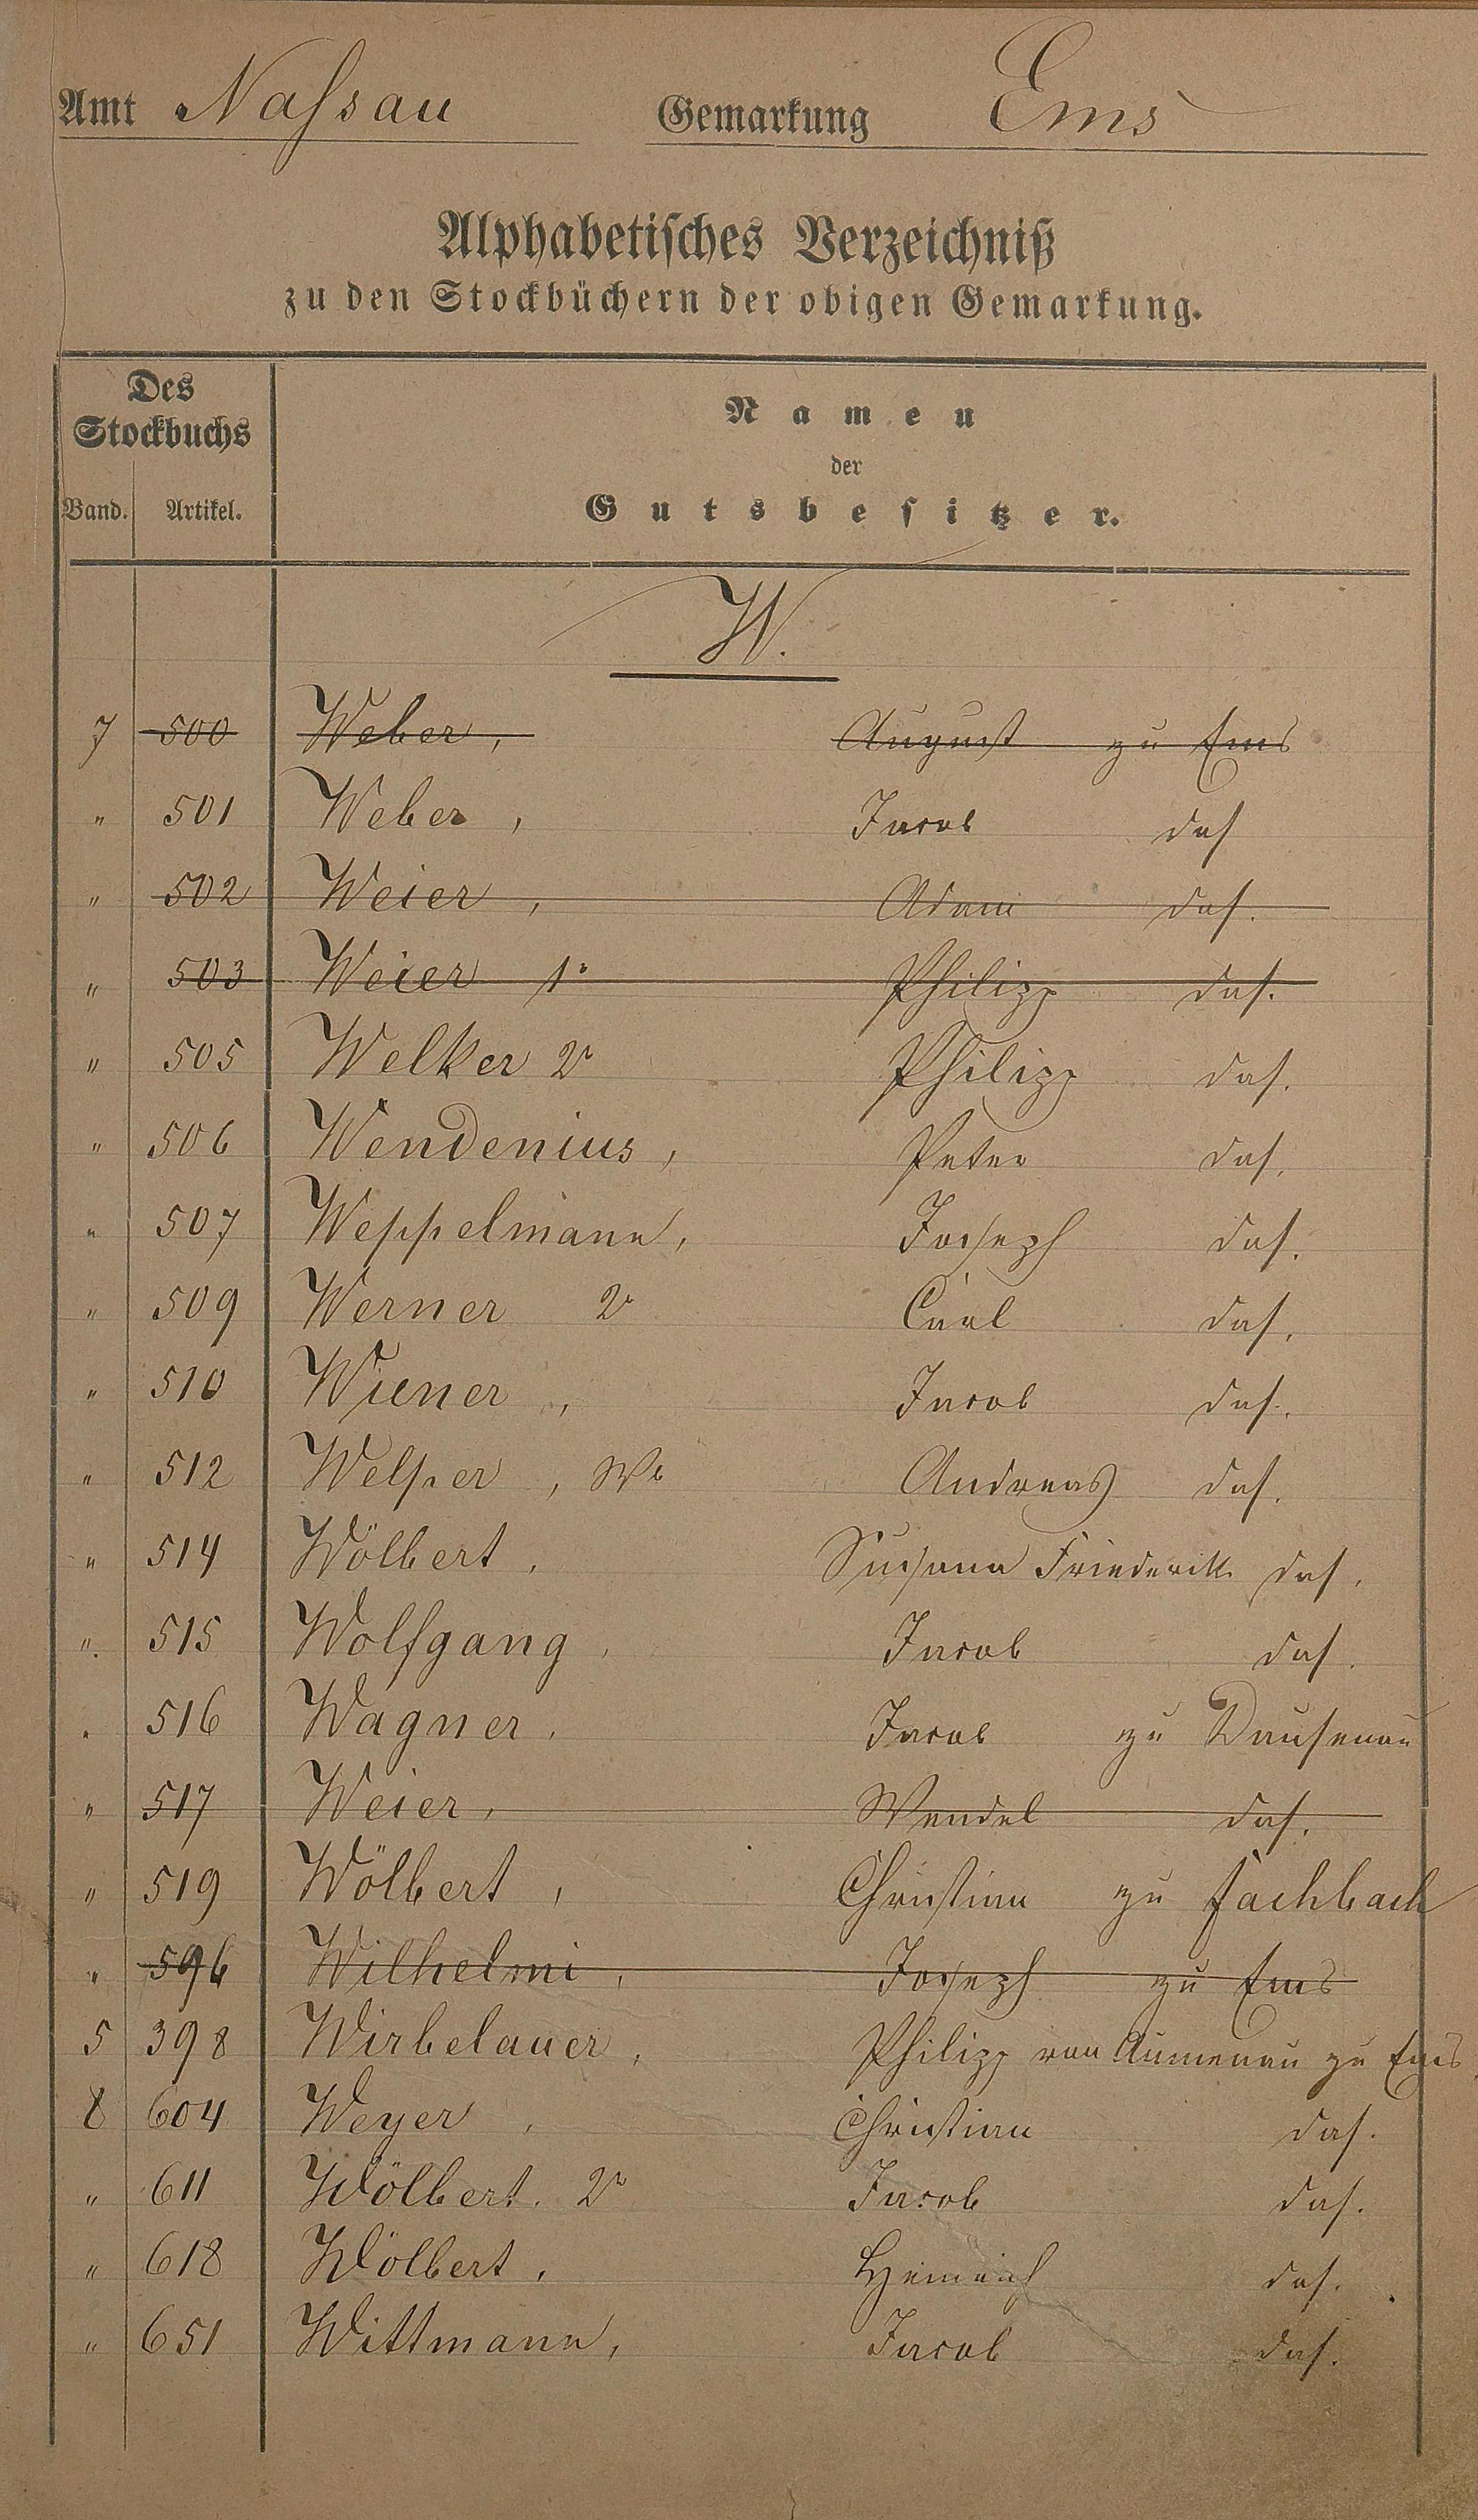 Amt Nassau Gemarkung Ems
Alphabetisches Verzeichniß
zu den Stockbüchern der obigen Gemarkung.
Des
Stockbuchs
Namen
der
Gutsbesitzer.
Band. Artikel.
W.
7 500 Weber, August zu Ems
" 501 Weber, Jacob das
" 502 Weier, Adam das.
" 503 Weier 1r Philipp das.
" 505 Welker 2r Philipp das.
" 506 Wendenius, Peter das.
" 507 Weppelmann, Joseph das.
" 509 Werner 2r Carl das.
" 510 Wiener, Jacob das.
" 512 Welper, We Andreas das.
" 514 Wölbert, Susana Friederike das.
" 515 Wolfgang, Jacob das.
" 516 Wagner, Jacob zu Dausenau
" 517 Weier, Wendel das.
" 519 Wölbert, Christian zu Fachbach
" 596 Wilhelmi, Joseph zu Ems
5 398 Wirbelauer, Philipp von Aumenau zu Ems
8 604 Weyer, Christian das.
" 611 Wölbert. 2r Jacob das.
" 618 Wölbert, Heinrich das.
" 651 Wittmann, Jacob das.